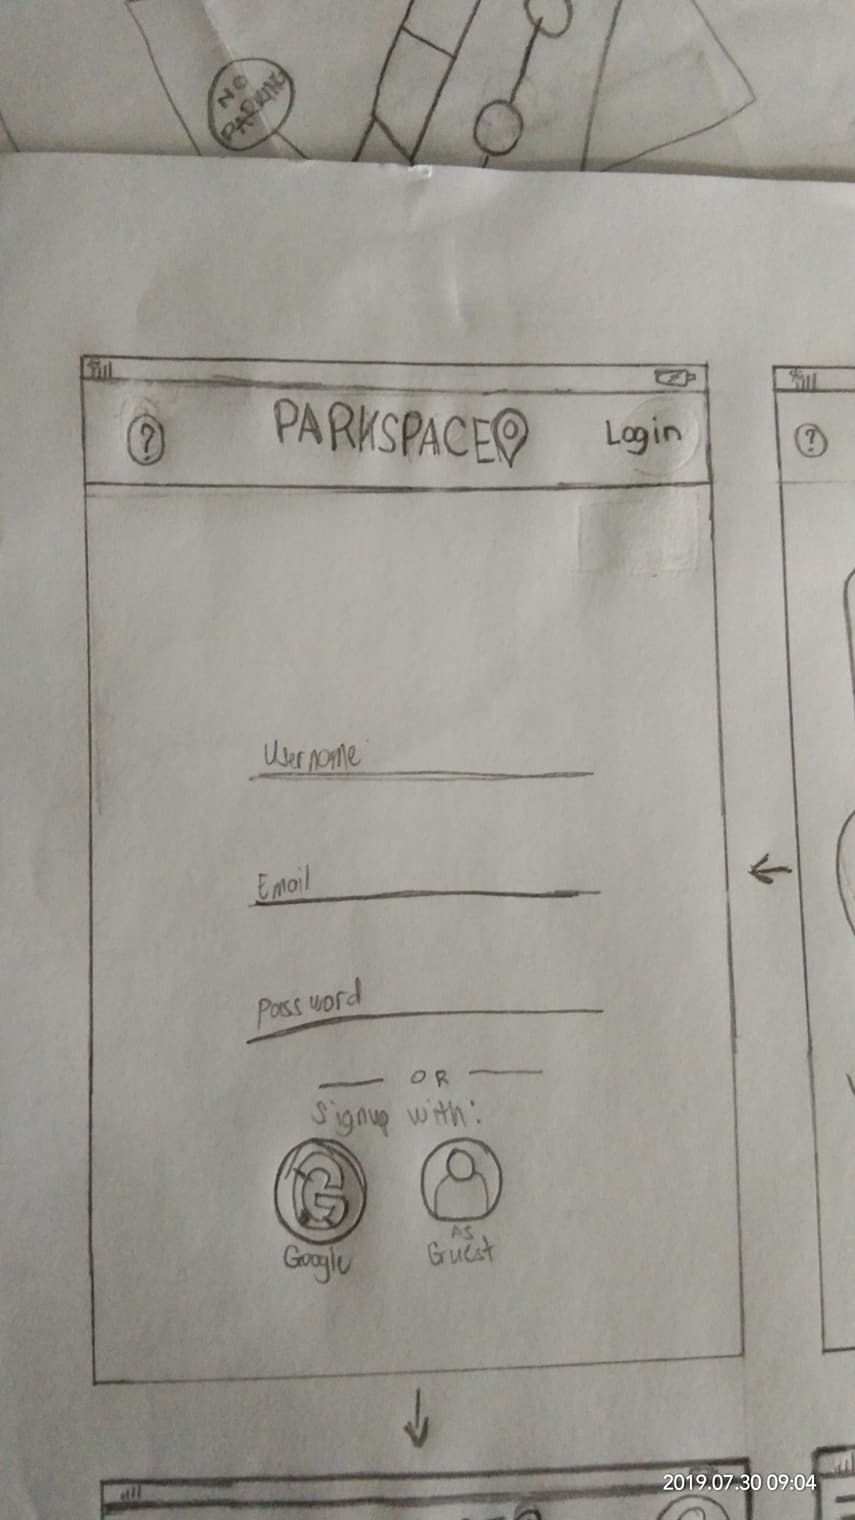 NO
PARKING
?
PARKSPACE
Login
?
Username
Email
Password
OR
Signup with:
G
Google
As
Guest
2019.07.30 09:04